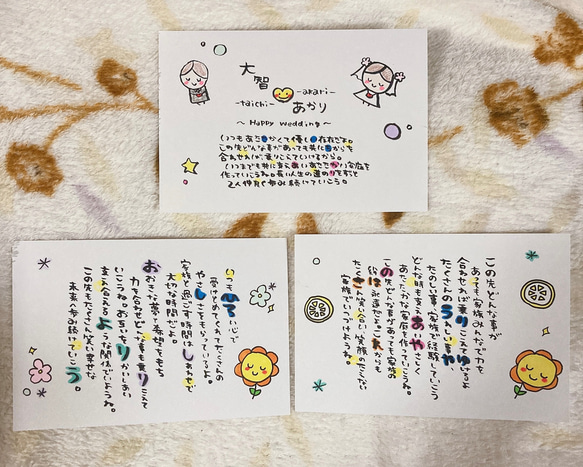 大智
-taichi-
-akari-
あかり
～ Happy wedding ～
いつもあたたかくて優しい存在だよ。
この先どんな事があっても共にちからを
合わせれば乗りこえていけるから。
いつまでも共に支えあいあたたかい家庭を
作っていこうね。長い人生の道のりをずっと
2人仲良く歩み続けていこう。
いつも広い心で
受けとめてくれてたくさんの
やさしさをもらっているよ。
家族と過ごす時間はしあわせで
大切な時間だよ。
おおきな夢や希望をもち
力を合せどんな事も乗りこえて
いこうね。お互いを労りかいしあい
支え合えるような関係でいようね。
この先もたくさん笑い幸せな
未来へ歩み続けていこう。
この先どんな事が
あっても家族みんなで力を
合わせれば乗りこえてゆけるよ
たのしい事を家族と経験していこう
どんな時も支えあいやさしく
あたたかな家庭を作っていこうね。
この先どんな事があっても家族の
たくさん笑い合い笑顔のたえない
家族でいつづけようね。